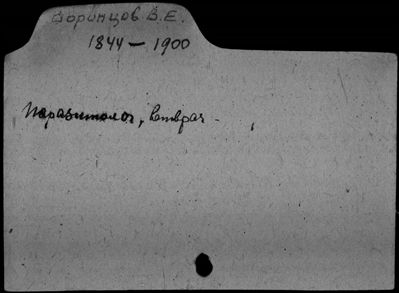 Воринцов В.Е.
1844 — 1900
Паразитолог, ветврач.